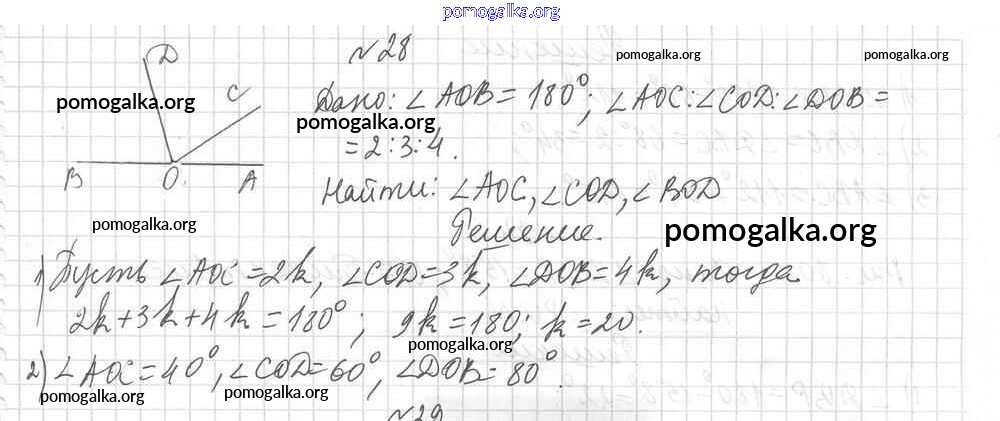 pomogalka.org
№28
pomogalka.org pomogalka.org
D
C
pomogalka.org
B O A
Дано: ∠AOB = 180°; ∠AOC:∠COD:∠DOB =
pomogalka.org
= 2:3:4.
Найти: ∠AOC, ∠COD, ∠BOD
pomogalka.org
Решение.
pomogalka.org
1) Пусть ∠AOC = 2k, ∠COD = 3k, ∠DOB = 4k, тогда
2k + 3k + 4k = 180°; 9k = 180; k = 20.
pomogalka.org
2) ∠AOC = 40°, ∠COD = 60°, ∠DOB = 80°.
pomogalka.org pomogalka.org pomogalka.org
№29